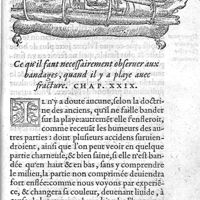 Ce qu'il faut necessairement obseruer aux
bandages, quand il y a playe auec
fracture. CHAP. XXIX.
IL n'y a doute aucune, selon la doctri
ne des anciens, qu'il ne faille bander
sur la playe: autremēt elle s'enfleroit,
comme receuāt les humeurs des au
tres parties: dont plusieurs accidens suruien-
droient, ainsi que l'on peut veoir en quelque
partie charneuse, & bien saine, si elle n'est ban-
dée qu'en haut & en bas, sans y comprendre
le milieu, la partie non comprimée deuiendra
fort enflée: comme nous voyons par experiē-
ce, & changera sa couleur, deuenant liuide,